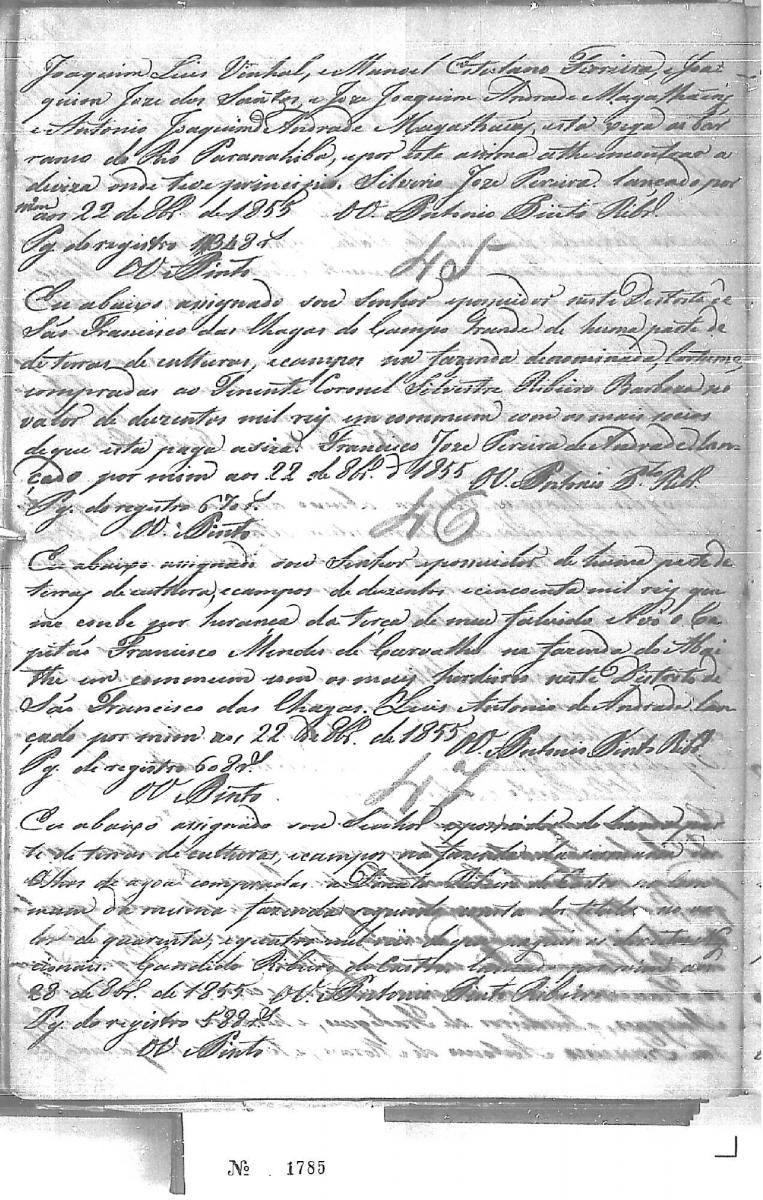 Joaquim Luis Vinhal, e Manoel Estolano Ferreira, e Joa
quim Joze dos Santos, e Joze Joaquim Andrade Magalhães,
e Antonio Joaquim d'Andrade Magalhães, esta vega as bar
rancas do Rio Paranahiba, e por este assima athe encontrar a
deviza onde teve principio. Silverio Joze Pereira. lançado por
mim aos 22 de 8br. de 1855 OV. Antonio Pinto Ribr.
Pg. de registro 1348 r.
OV. Pinto
45
Eu abaixo assignado sou Senhor e possuidor neste Distorto de
São Francisco das Chagas do Campo Grande de huma parte de
de terras de culturas, e campos na fazenda denominada,
compradas ao Tinente Coronel Silvestre Ribeiro Barboza no
valor de duzentos mil reis em commum com os mais socios
de que esta paga a siza. Francisco Joze Pereira de Andrade lan-
çado por mim aos 22 de 8br. d 1855 OV. Antonio Pto. Ribr.
Pg. de registro 670 r.
OV. Pinto
46
Eu abaixo assignado sou Senhor e possuidor de huma parte de
terras de cultura, e campos de duzentos e cincoenta mil reis que
me coube por herança da terça de meu falecido Avô o Ca
pitão Francisco Mendes de Carvalho na fazenda do Abai
the em commum com os mais herderos neste Distorto de
São Francisco das Chagas. Luis Antonio de Andrade lan
çado por mim aos 22 de 8br. de 1855 OV. Antonio Pinto Ribr.
Pg. de registro 608 r.
OV. Pinto
47
Eu abaixo assignado sou Senhor e possuidor de huma par
te de terras de culturas, e campos na fazenda denominada
de agoa compradas a Ribeiro de Castro
da mesma fazenda segundo consta do titolo no va
lor de quarenta, e quatro mil reis de que pagou os direitos
cionais. Candido Ribeiro de Castro lançado por mim aos
28 de 8br. de 1855. OV. Antonio Pinto Ribeiro
Pg. de registro 588 r.
OV. Pinto
Nº 1785